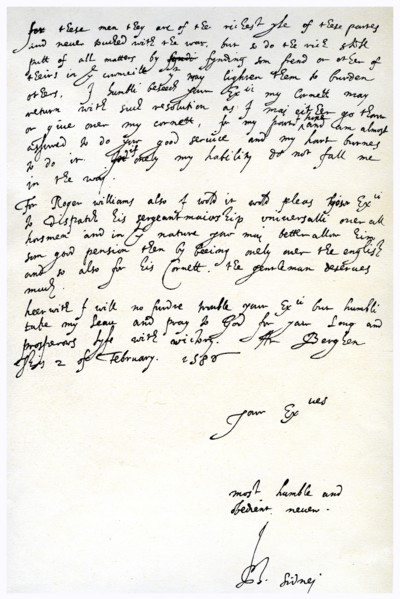 for these men they are of the richest of these partes
and never touched with the war, but so do the rich still
putt of all matters by fynding som frend or other of
theirs in counceill may lighten them to burden
others, I humbli beseech your Ex my Cornett may
return with such resolution as I mai either go thorow
or give over my cornett, for my part I am almost
assured to do good service and my hart burnes
to do it onely my hability do not fall me
in the way.
For Roger williams also I wold it wold pleas your Ex
to dispatch his sergeantmaiorship universalli over all
horsmen and in nature your mai better allow him
som good pension then by beeing onely over the english
and so also for his Cornett. the gentleman deserves
much.
heerwith I will no furdre trouble your Ex but humbli
take my leave and pray to God for your Long and
prosperous lyfe with victory. At Berghen
this 2 of February. 1586
Your Ex
most humble and
obedient neveu.
Ph. Sidnei